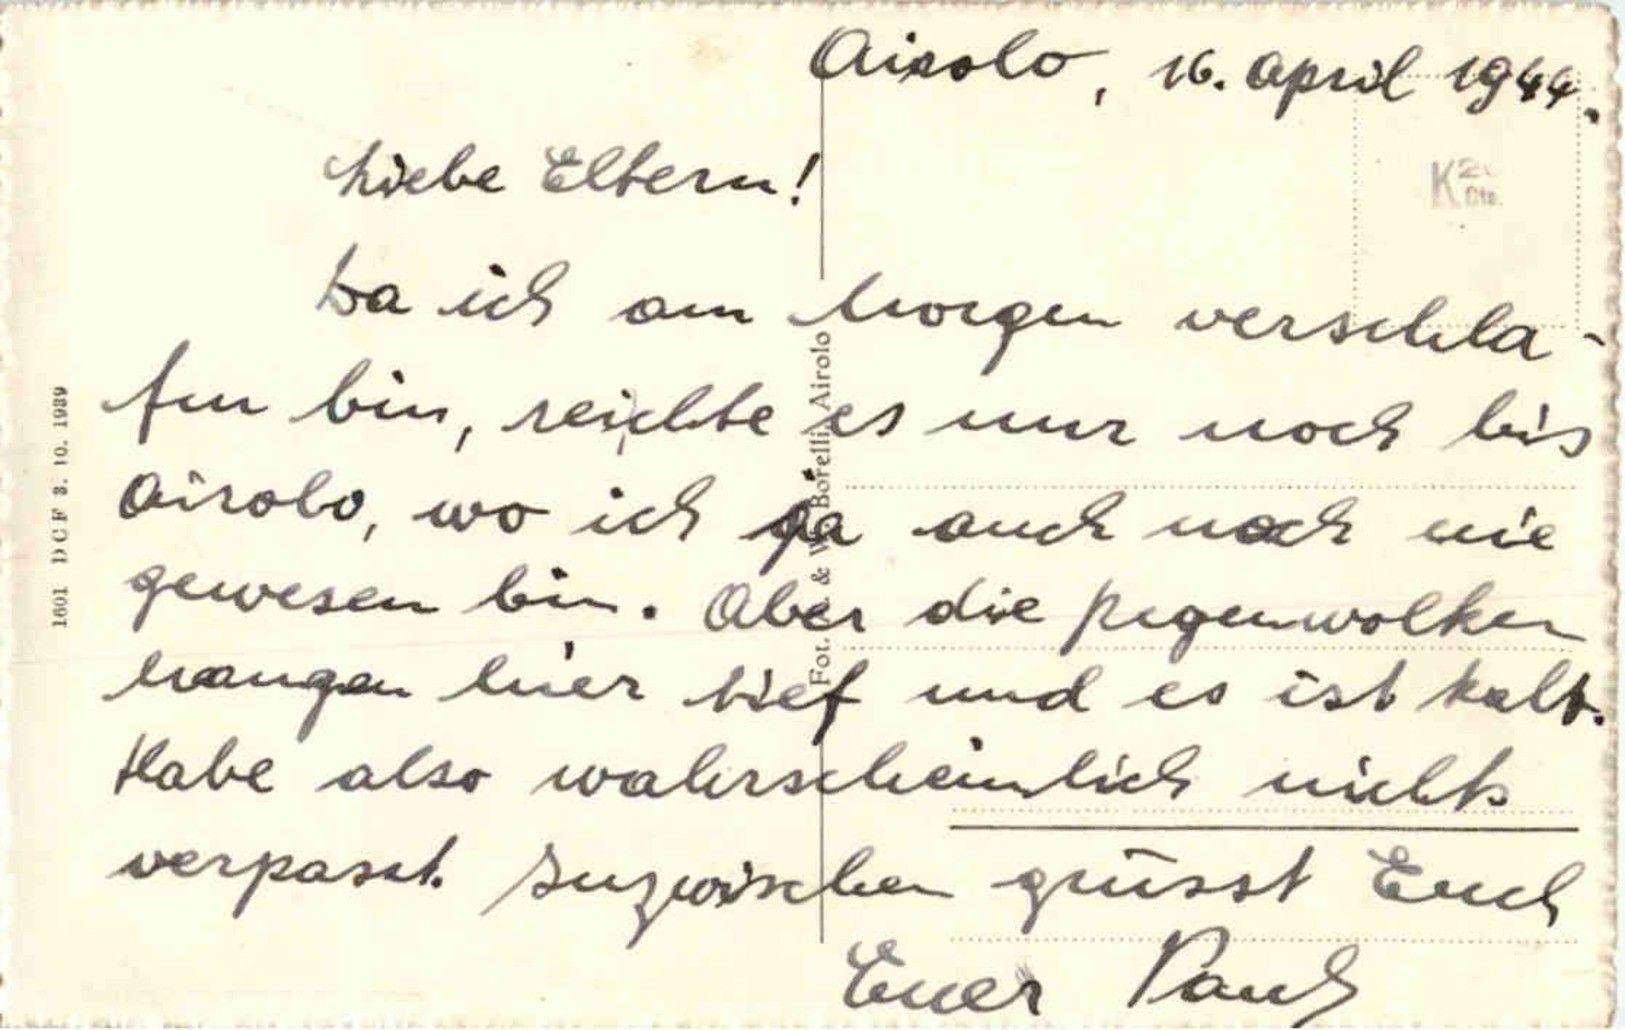 Airolo, 16. April 1944.
K 20
Cts.
Liebe Eltern!
Da ich am Morgen verschla-
fen bin, reichte es nur noch bis
Airolo, wo ich ja auch noch nie
gewesen bin. Aber die Regenwolken
hangen hier tief und es ist kalt.
Habe also wahrscheinlich nichts
verpasst. Inzwischen grüsst Euch
Euer
1601 DCF 3. 10. 1939
Fot. & Borelli, Airolo